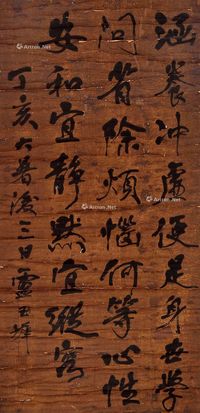 涵養冲虛便是身世學
問省除煩惱何等心性
安和宜靜默宜縱容
丁亥大暑後三日
Artron.Net